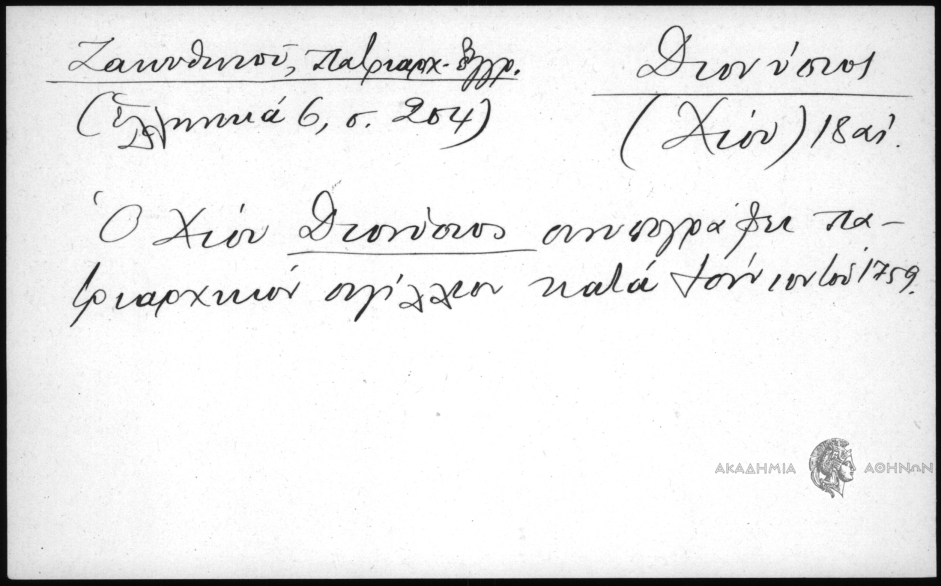 Ζακυθηνοῦ, πατριαρχ. ἔγγρ.
(Ἑλληνικά 6, σ. 204)
Διονύσιος
(Χίου) 18 αἰ.
Ὁ Χίου Διονύσιος συνυπογράφει πα-
τριαρχικόν σιγίλλιον κατά τόν ιον τοῦ 1759.
ΑΚΑΔΗΜΙΑ ΑΘΗΝΩΝ